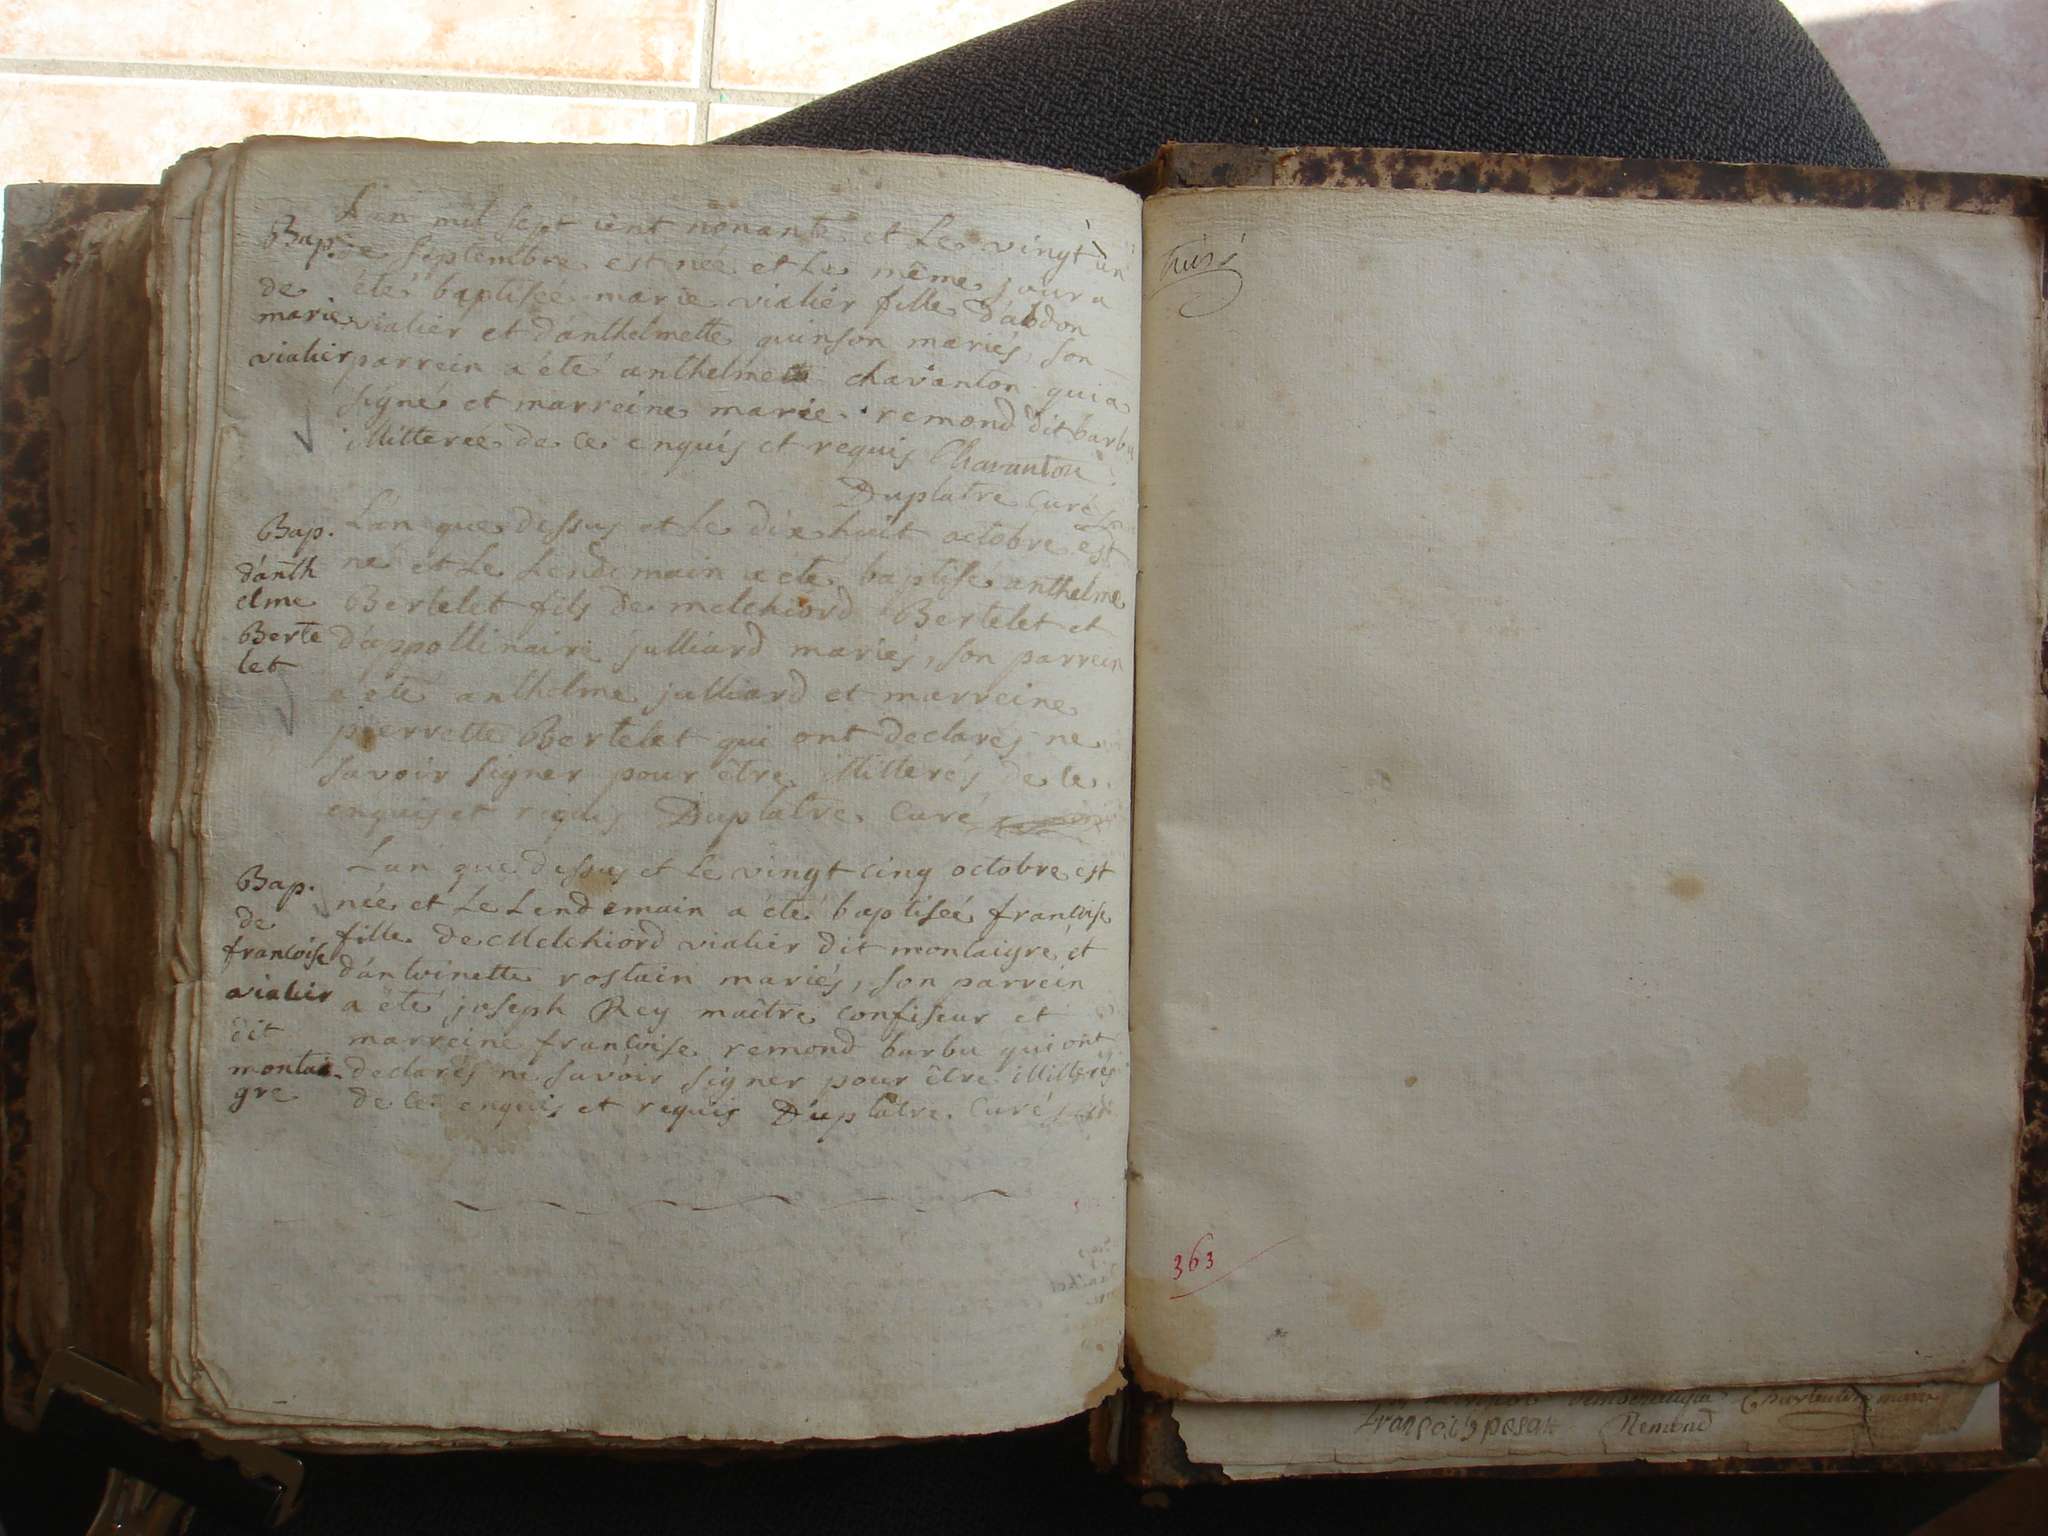 L'an mil sept cent nonante et Le vingt un
Bap. de septembre est née et Le même jour a
de été baptisée marie vialier fille d'abdon
marie vialier et d'anthelmette quinson mariés, son
vialier parrein a été anthelme chavanton qui a
signé et marreine marie remond dit barbu
illitterée de ce enquis et requis Chavanton
Duplatre Curé
Bap. L'an que dessus et Le dix huit octobre est
d'anth né et Le Lendemain a été baptisé anthelme
elme Bertelet fils de melchiord Bertelet et
Berte d'appollinaire julliard mariés, son parrein
let a été anthelme julliard et marreine
pierrette Bertelet qui ont declarés ne
savoir signer pour être illitterés de ce
enquis et requis Duplatre Curé
L'an que dessus et Le vingt cinq octobre est
Bap. née et Le Lendemain a été baptiseé francoise
de fille de Melchiord vialier dit montaigre et
francoise d'antoinette rostain mariés, son parrein
vialier a été joseph Rey maître confiseur et
dit marreine francoise remond barbu qui ont
montai declarés ne savoir signer pour être illitterés
gre de ce enquis et requis Duplatre Curé
363
françois posat Remond